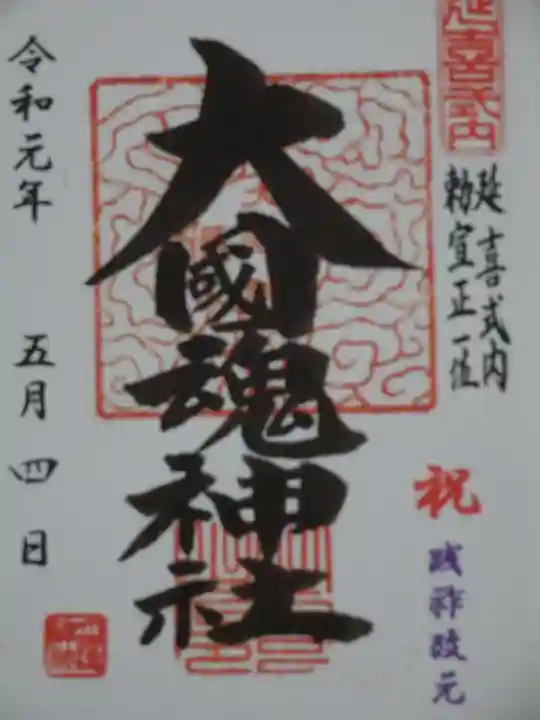 延喜式内
延喜式内
勅宣正一位
祝
践祚改元
大國魂神社
令和元年 五月四日